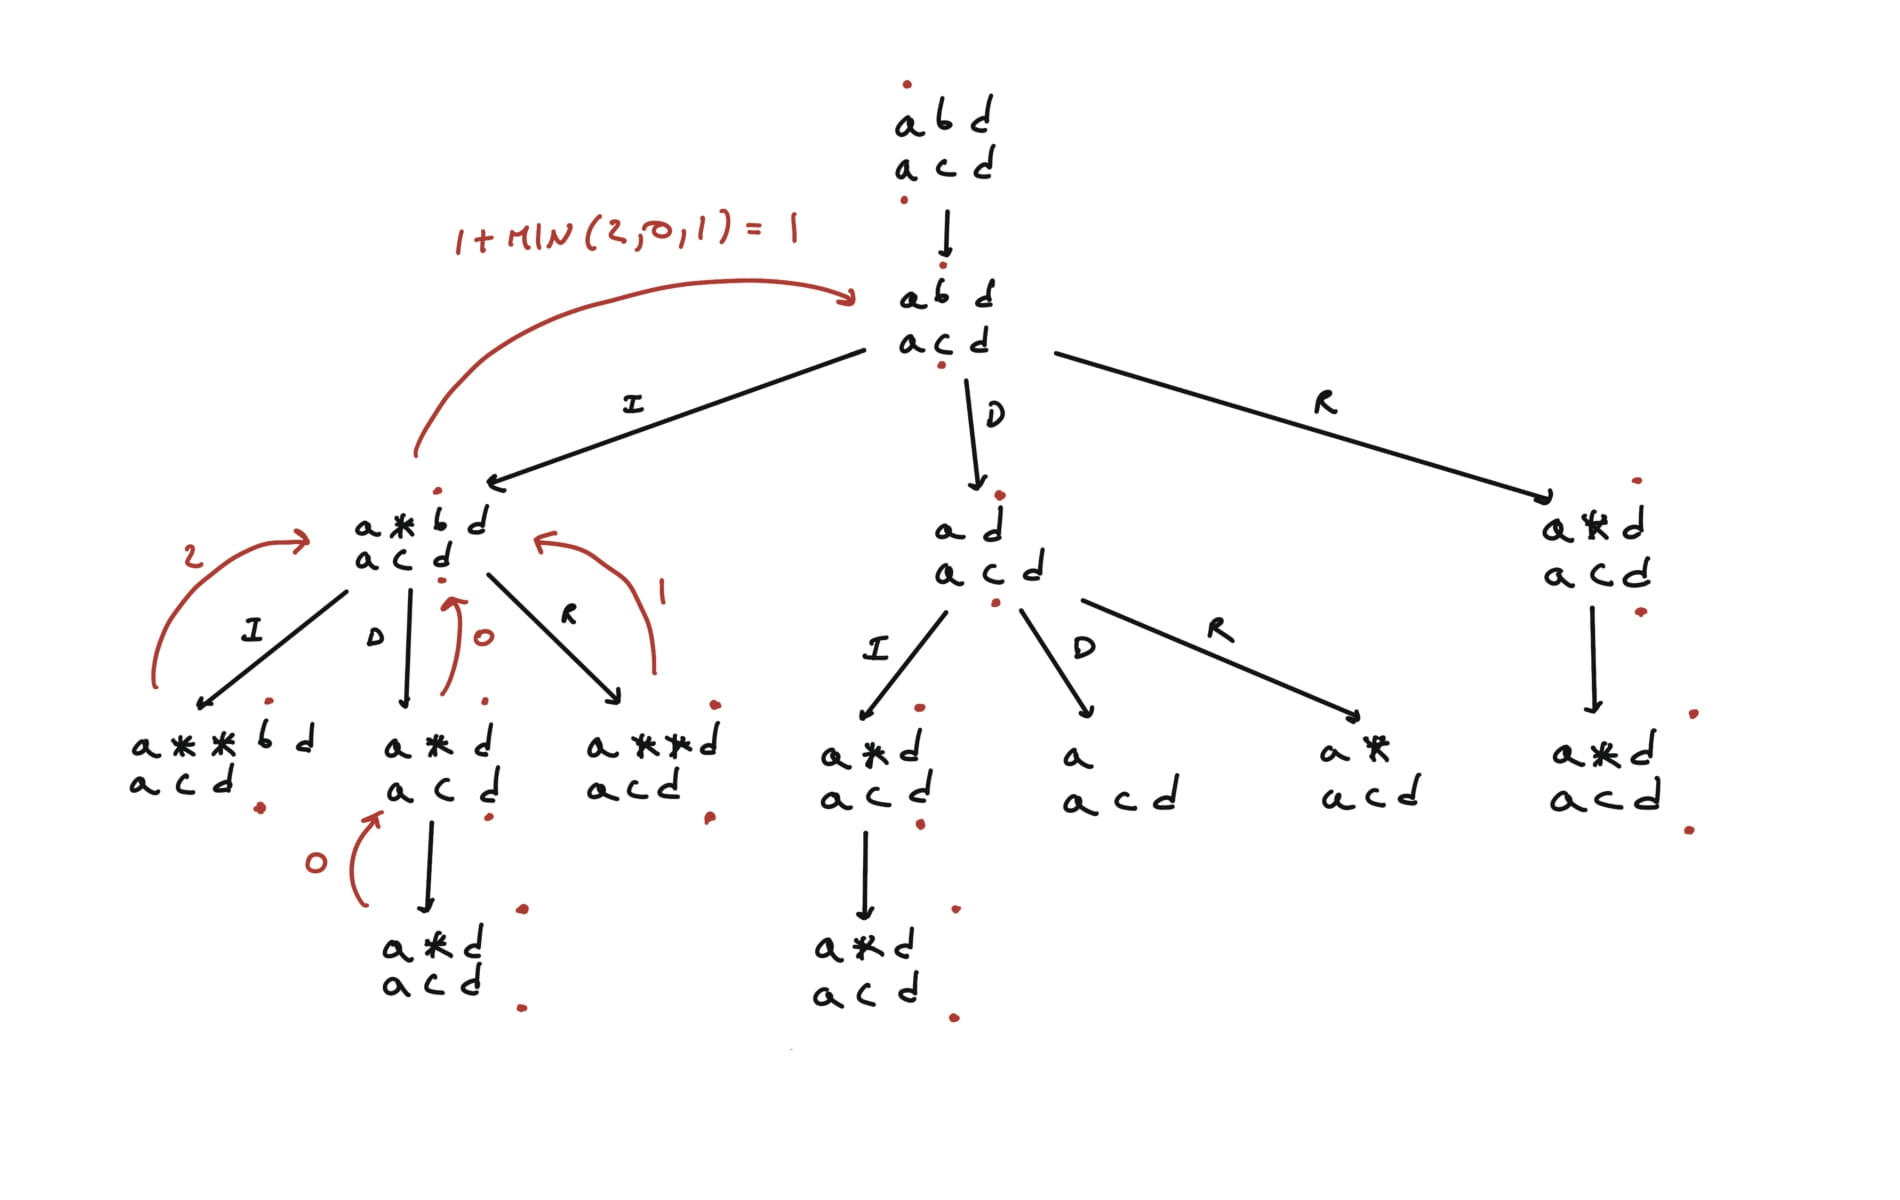 a b d
a c d
1 + MIN (2,0,1) = 1
a b d
a c d
I
D
R
a * b d
a c d
a d
a c d
a * d
a c d
2
I
D
0
R
1
I
D
R
a * * b d
a c d
a * d
a c d
a * * d
a c d
a * d
a c d
a
a c d
a *
a c d
a * d
a c d
0
a * d
a c d
a * d
a c d